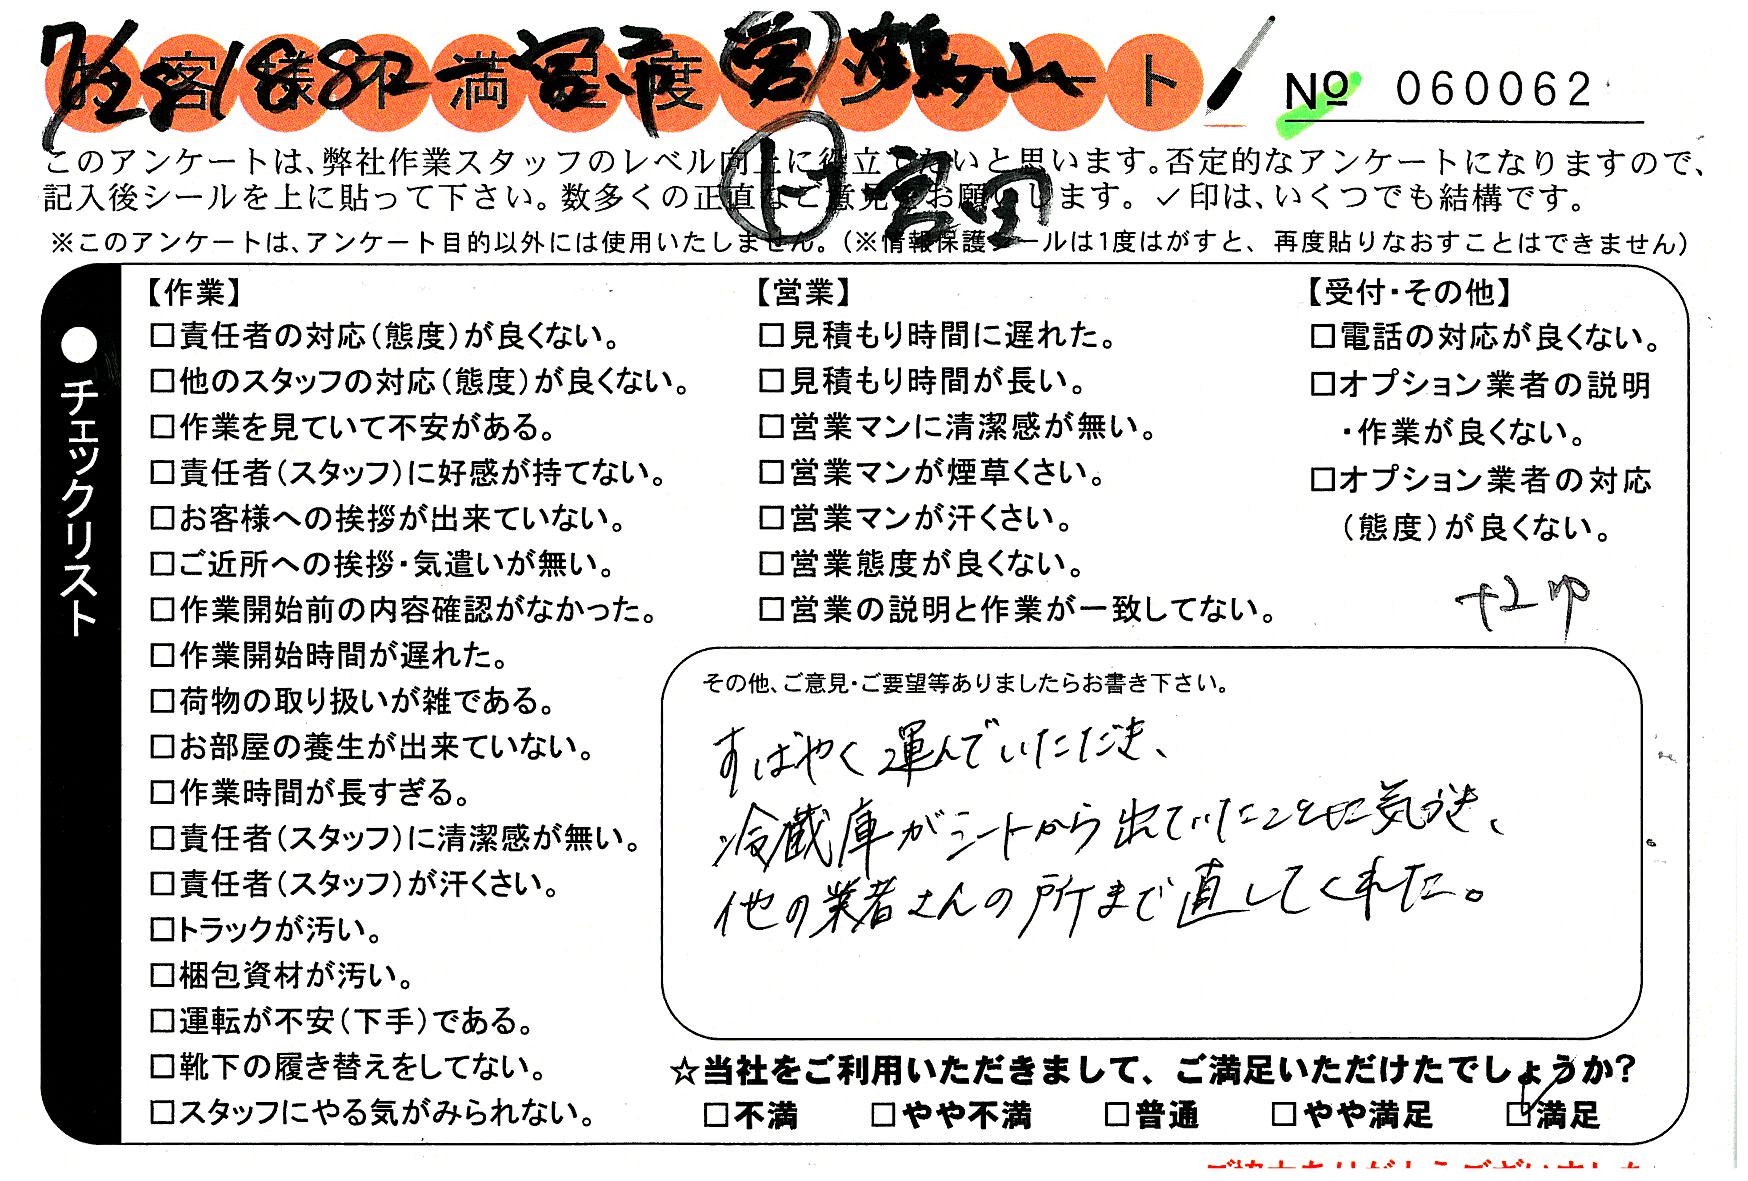 お客様不満足度アンケート
No 060062
このアンケートは、弊社作業スタッフのレベル向上に役立てたいと思います。否定的なアンケートになりますので、
記入後シールを上に貼って下さい。数多くの正直なご意見をお願いします。✓印は、いくつでも結構です。
※このアンケートは、アンケート目的以外には使用いたしません。(※情報保護シールは1度はがすと、再度貼りなおすことはできません)
●チェックリスト
【作業】
□責任者の対応(態度)が良くない。
□他のスタッフの対応(態度)が良くない。
□作業を見ていて不安がある。
□責任者(スタッフ)に好感が持てない。
□お客様への挨拶が出来ていない。
□ご近所への挨拶・気遣いが無い。
□作業開始前の内容確認がなかった。
□作業開始時間が遅れた。
□荷物の取り扱いが雑である。
□お部屋の養生が出来ていない。
□作業時間が長すぎる。
□責任者(スタッフ)に清潔感が無い。
□責任者(スタッフ)が汗くさい。
□トラックが汚い。
□梱包資材が汚い。
□運転が不安(下手)である。
□靴下の履き替えをしてない。
□スタッフにやる気がみられない。
【営業】
□見積もり時間に遅れた。
□見積もり時間が長い。
□営業マンに清潔感が無い。
□営業マンが煙草くさい。
□営業マンが汗くさい。
□営業態度が良くない。
□営業の説明と作業が一致してない。
【受付・その他】
□電話の対応が良くない。
□オプション業者の説明
・作業が良くない。
□オプション業者の対応
(態度)が良くない。
その他、ご意見・ご要望等ありましたらお書き下さい。
すばやく運んでいただき、
冷蔵庫がシートから出ていたことに気づき、
他の業者さんの所まで直してくれた。
☆当社をご利用いただきまして、ご満足いただけたでしょうか?
□不満 □やや不満 □普通 □やや満足 ☑満足